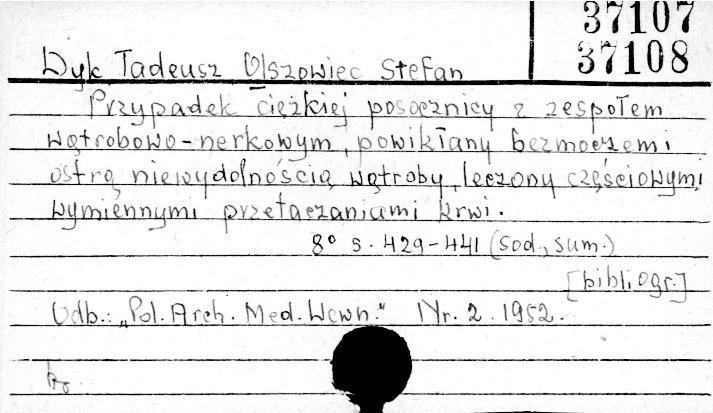 37107
37108
Dyk Tadeusz Olszowiec Stefan
Przypadek ciężkiej posocznicy z zespołem
wątrobowo-nerkowym, powikłany bezmoczem i
ostrą niewydolnością wątroby, leczony częściowymi
wymiennymi przetaczaniami krwi.
8° s. 429-441 (sod., sum.)
[bibliogr.]
Odb.: „Pol. Arch. Med. Wewn." Nr. 2. 1952.